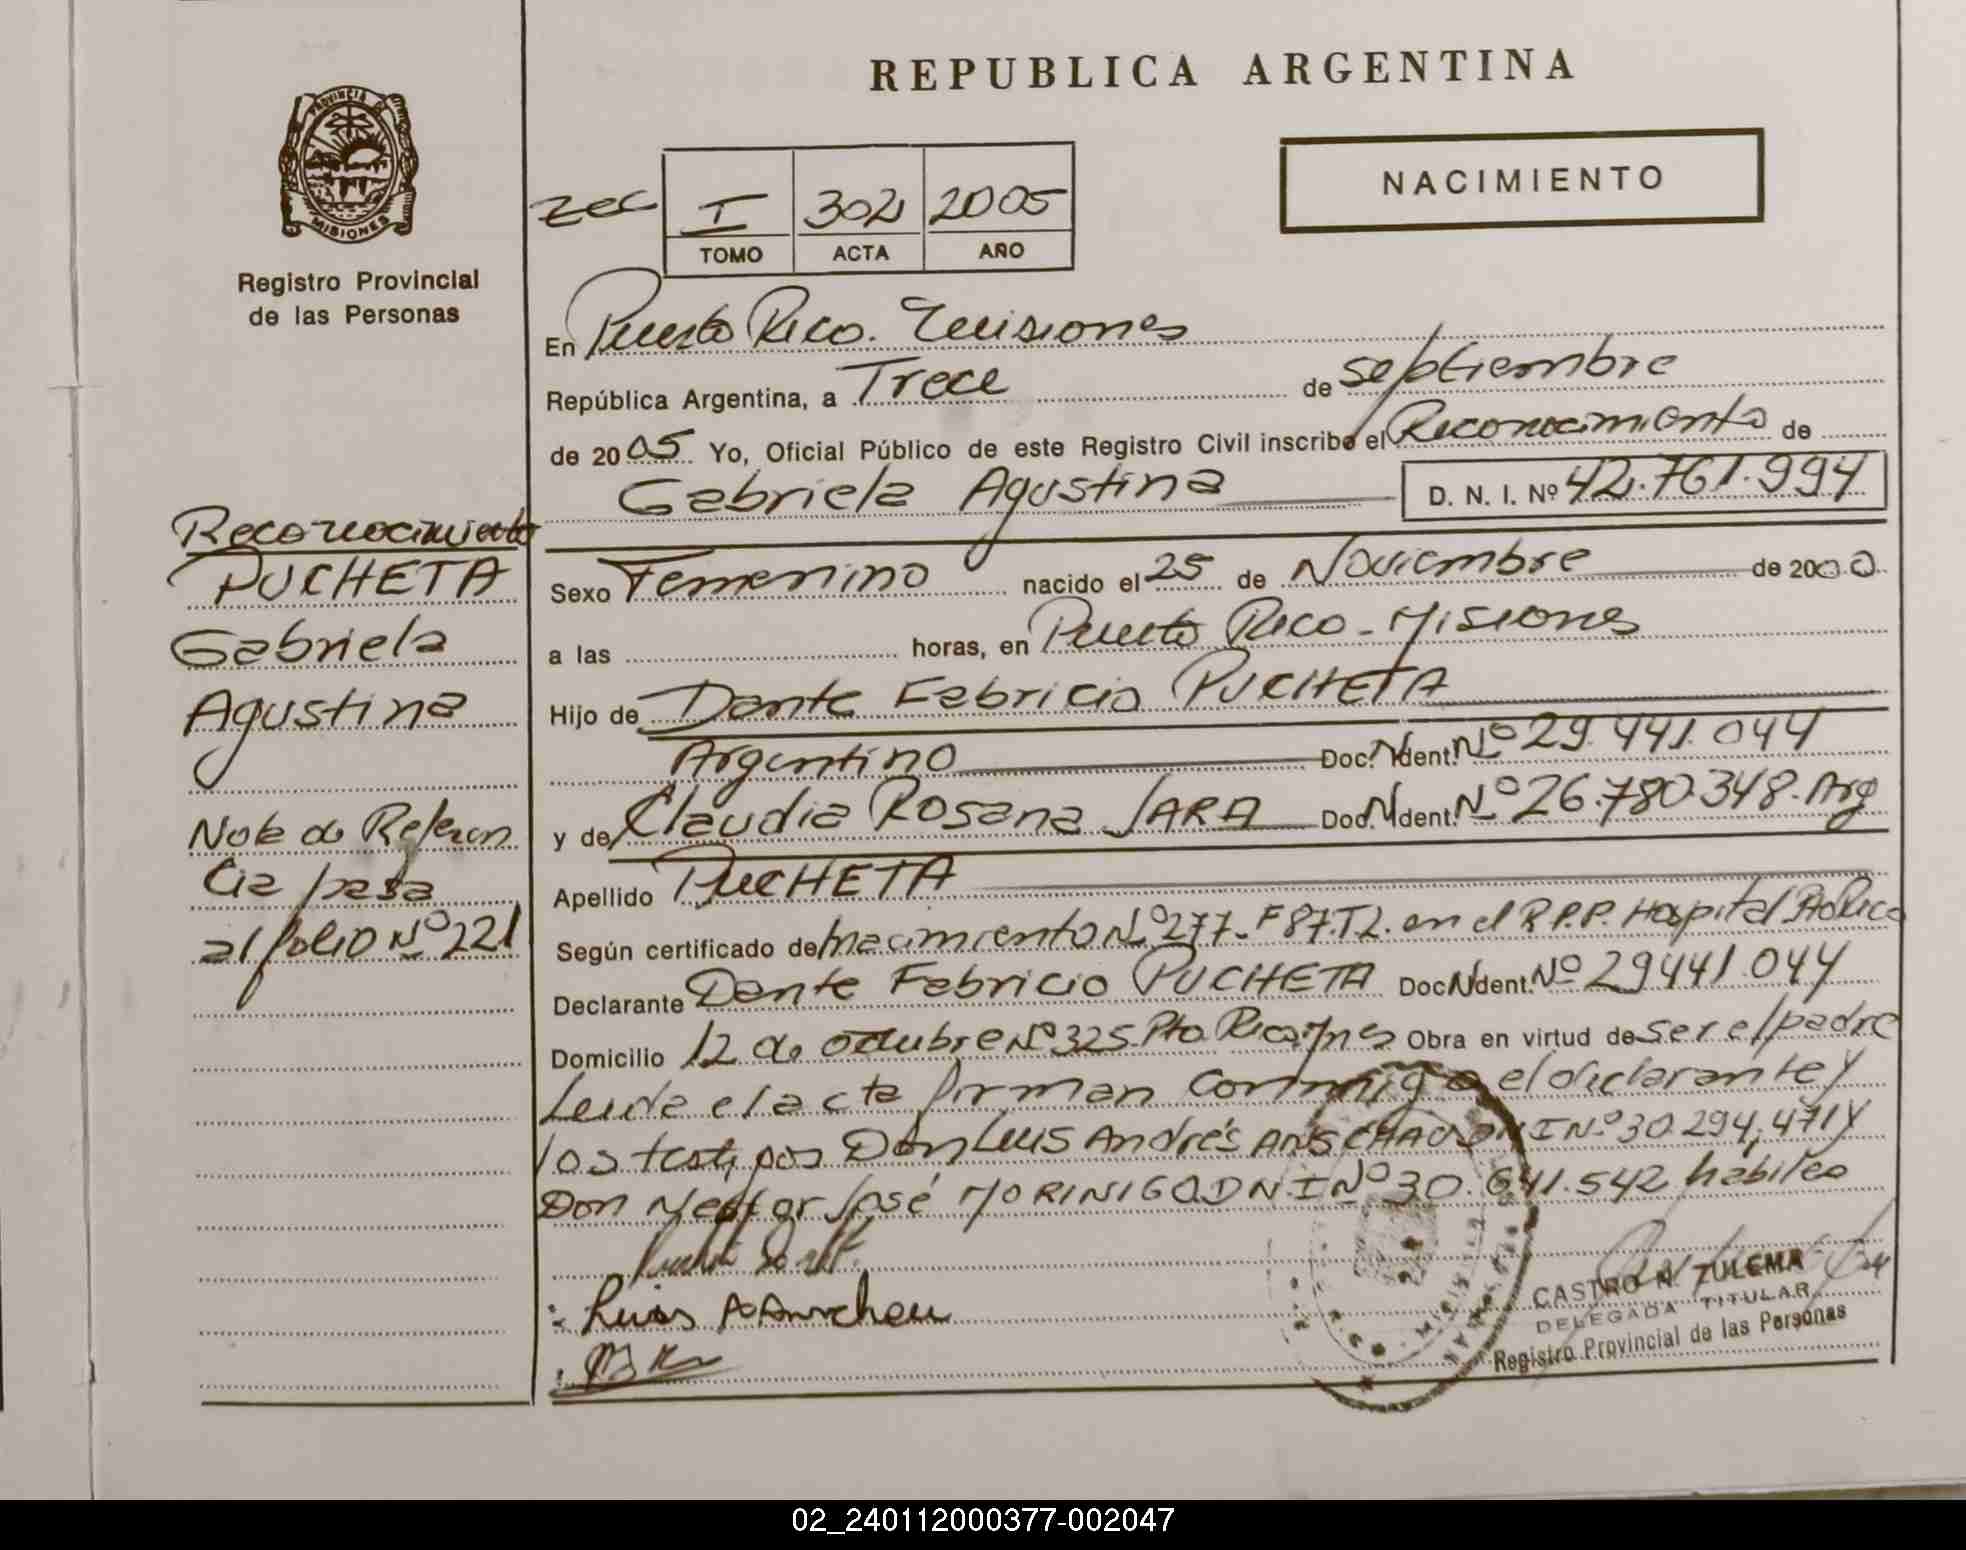 REPUBLICA ARGENTINA
PROVINCIA DE
MISIONES
Registro Provincial
de las Personas
NACIMIENTO
I 302 2005
TOMO ACTA AÑO
En Puerto Rico. Misiones
República Argentina, a Trece de septiembre
de 2005 Yo, Oficial Público de este Registro Civil inscribo el Reconocimiento de
Gabriela Agustina D. N. I. Nº 42.761.994
Sexo Femenino nacido el 25 de Noviembre de 2000
a las horas, en Puerto Rico - Misiones
Hijo de Dante Fabricio PUCHETA
Argentino Doc. Ident. Nº 29.441.044
y de Claudia Rosana JARA Doc. Ident. Nº 26.780.348. Arg
Apellido PUCHETA
Según certificado de nacimiento Nº 277- F 87. T2. en el R.P.P. Hospital Público
Declarante Dante Fabricio PUCHETA Doc. Ident. Nº 29441.044
Domicilio 12 de octubre Nº 325. Pto. Rico Mnes Obra en virtud de ser el padre
Leida el acta firman conmigo el declarante y
los testigos Don Luis Andrés ANSCHAU DNI Nº 30.294.471 y
Don Nestor José MORINIGO DNI Nº 30.641.542 habiles
Luis A
CASTRO N. ZULEMA
DELEGADA TITULAR
Registro Provincial de las Personas
Reconocimiento
PUCHETA
Gabriela
Agustina
Nota de Referen
cia pasa
al folio Nº 221
02_240112000377-002047